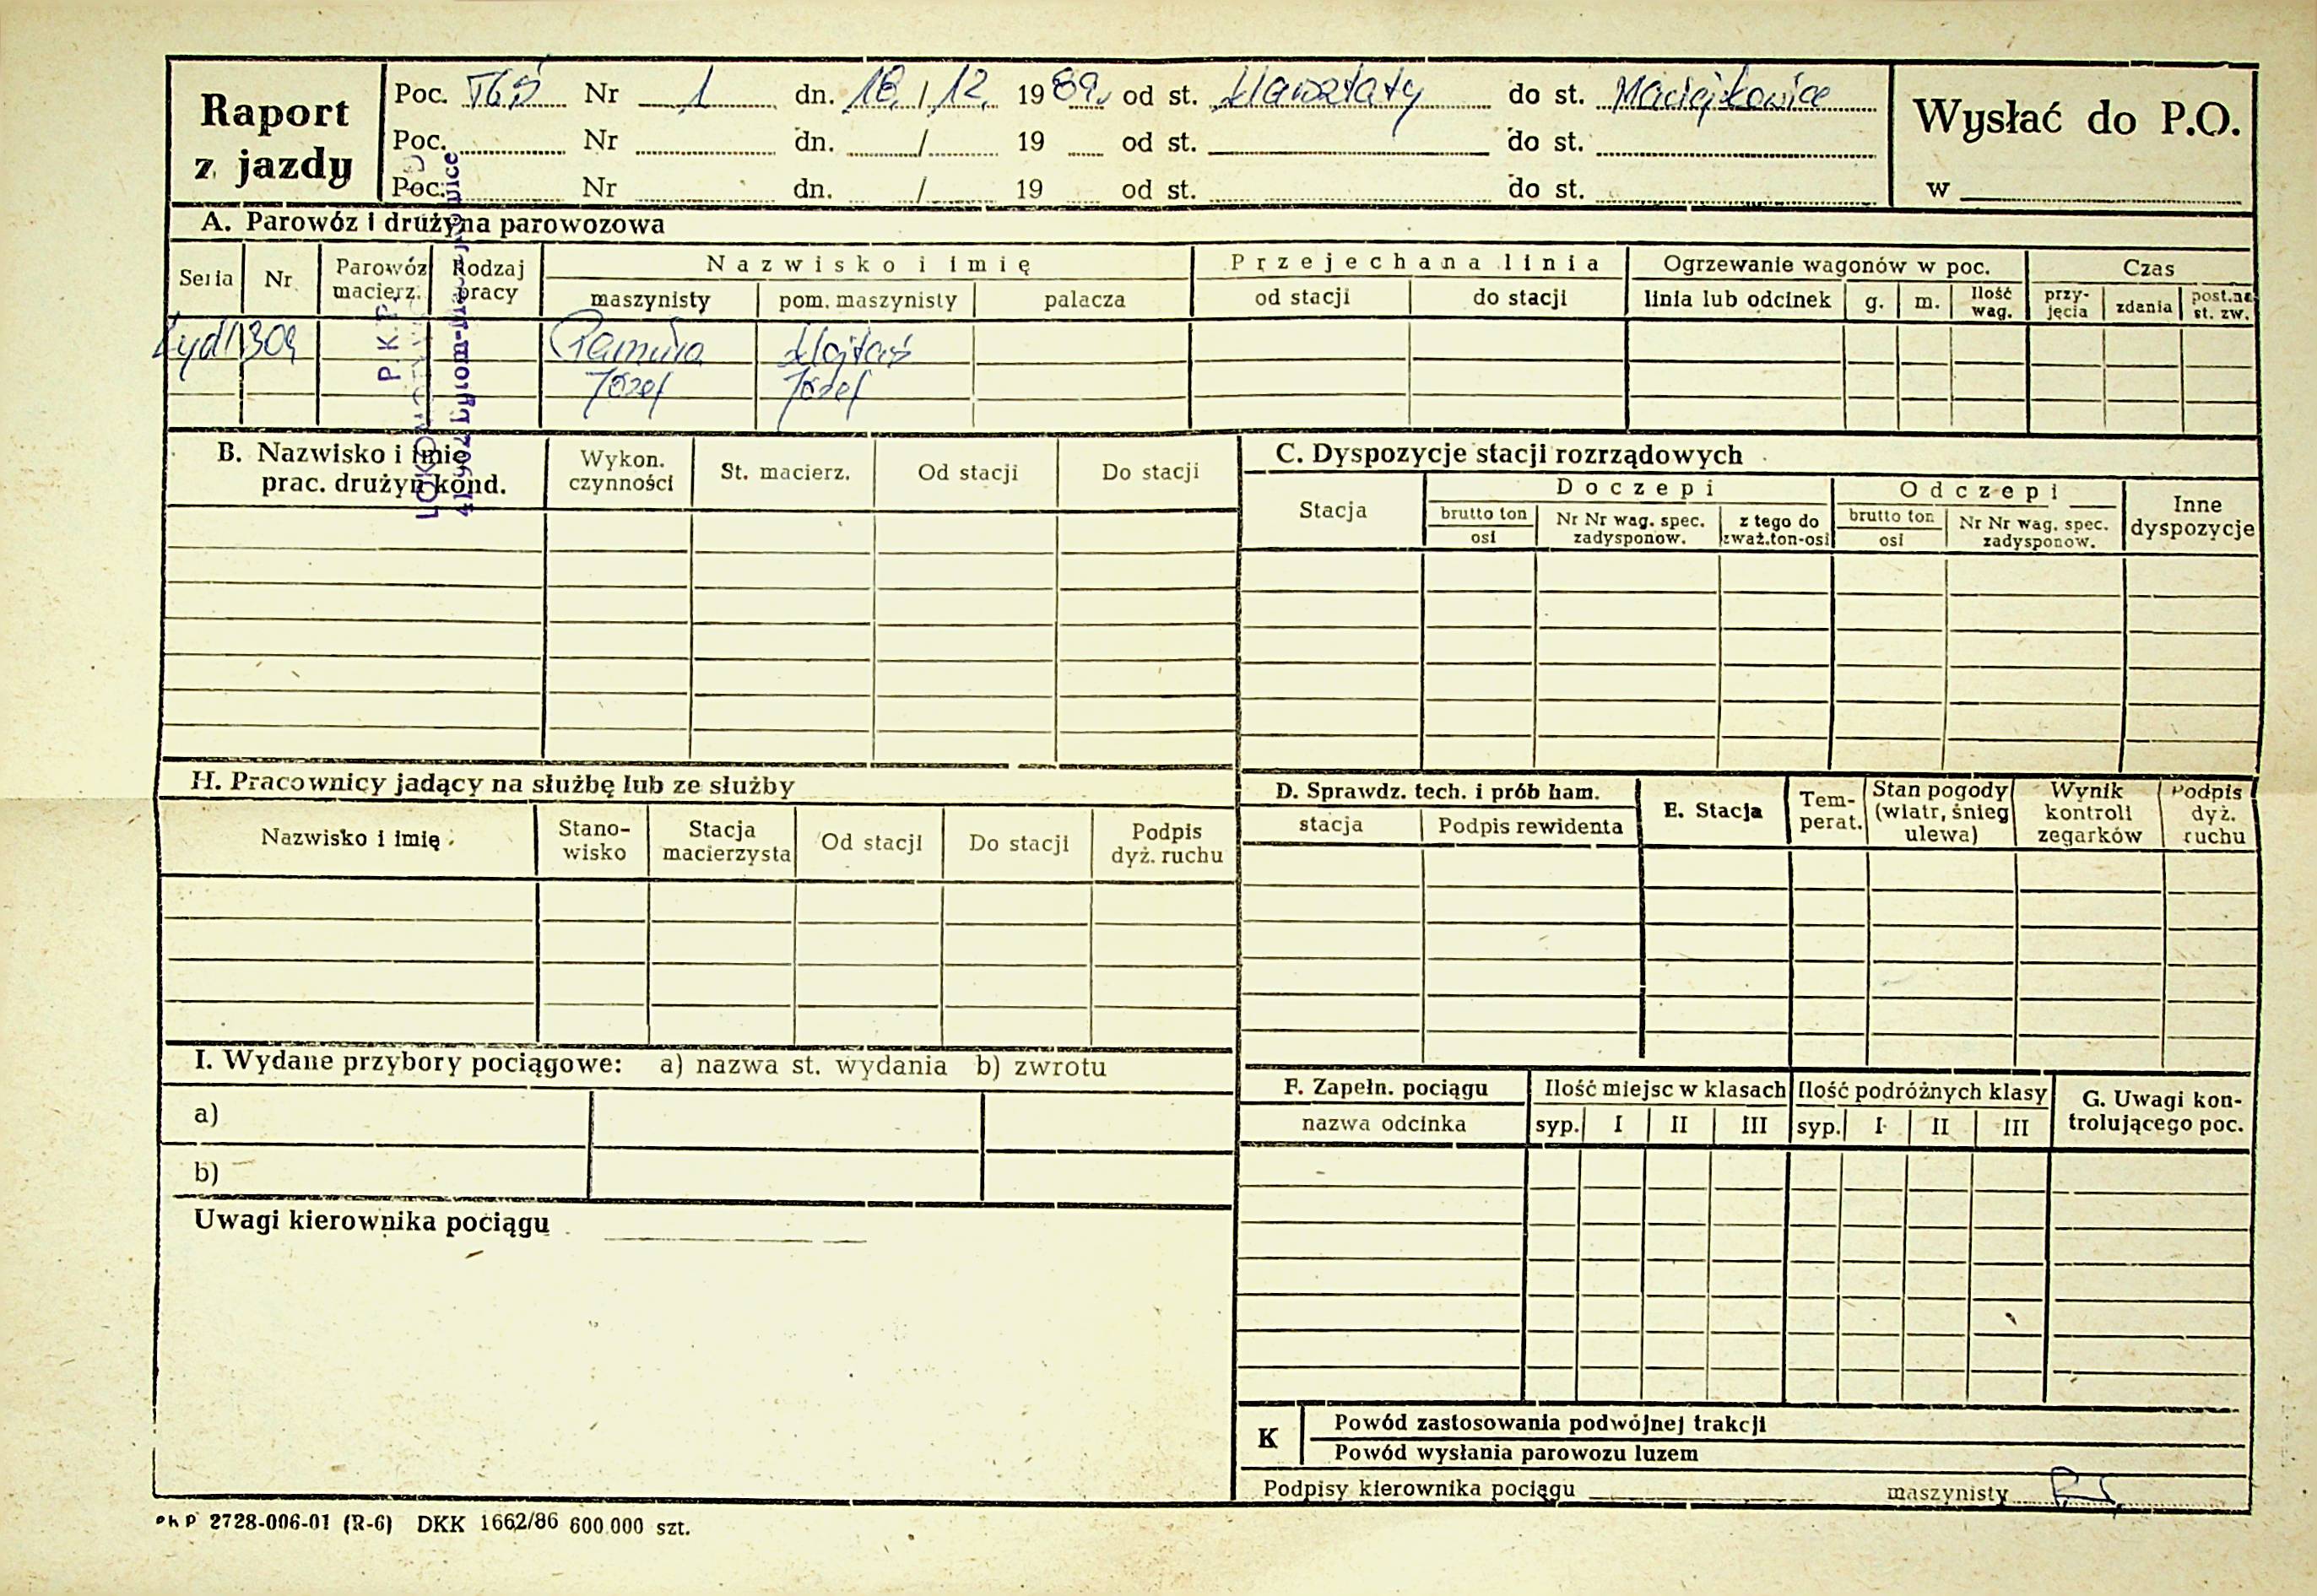 Raport
z jazdy
Poc. Nr 1 dn. 18 / 12. 1989. od st. Warsztaty do st. Maciejkowice
Poc. Nr dn. / 19 od st. do st.
Poc. Nr dn. / 19 od st. do st.
Wysłać do P.O.
w
A. Parowóz i drużyna parowozowa
Seria Nr Parowóz macierz. Rodzaj pracy
Nazwisko i imię
maszynisty pom. maszynisty palacza
Przejechana linia
od stacji do stacji
Ogrzewanie wagonów w poc.
linia lub odcinek g. m. Ilość wag.
Czas
przyjęcia zdania post. na st. zw.
Lyd1 309 Wojtaś
Józef Józef
P.K.P.
B. Nazwisko i imię
prac. drużyn kond.
Wykon. czynności St. macierz. Od stacji Do stacji
C. Dyspozycje stacji rozrządowych
Stacja
Doczepi
brutto ton osi Nr Nr wag. spec. zadysponow. z tego do zważ. ton-osi
Odczepi
brutto ton osi Nr Nr wag. spec. zadysponow.
Inne dyspozycje
H. Pracownicy jadący na służbę lub ze służby
Nazwisko i imię Stano-wisko Stacja macierzysta Od stacji Do stacji Podpis dyż. ruchu
D. Sprawdz. tech. i prób ham.
stacja Podpis rewidenta
E. Stacja Tem-perat. Stan pogody (wiatr, śnieg ulewa) Wynik kontroli zegarków Podpis dyż. ruchu
I. Wydane przybory pociągowe: a) nazwa st. wydania b) zwrotu
a)
b)
Uwagi kierownika pociągu
F. Zapełn. pociągu
nazwa odcinka
Ilość miejsc w klasach
syp. I II III
Ilość podróżnych klasy
syp. I II III
G. Uwagi kon-
trolującego poc.
K
Powód zastosowania podwójnej trakcji
Powód wysłania parowozu luzem
Podpisy kierownika pociągu maszynisty
PKP 2728-006-01 (R-6) DKK 1662/86 600.000 szt.